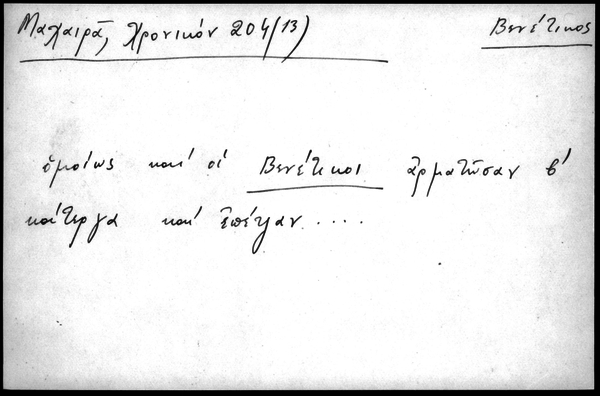 Μαχαιρᾶ, Χρονικόν 204(13)
Βενέτικος
ὁμοίως καί οἱ Βενέτικοι ἀρματῶσαν β΄
κάτεργα καί ἐπέψαν....